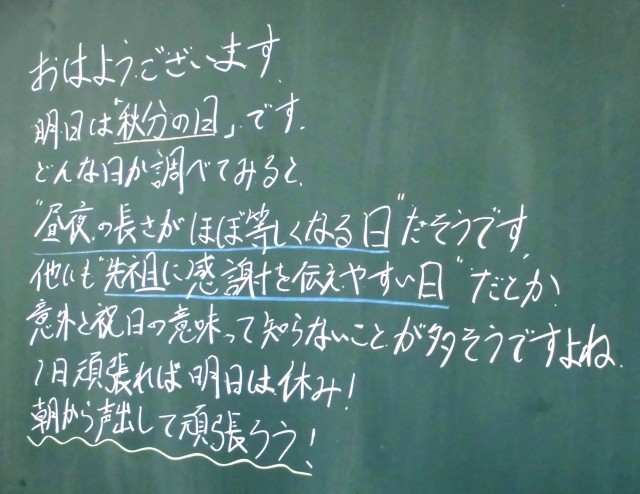 おはようございます.
明日は「秋分の日」です.
どんな日か調べてみると、
"昼夜の長さがほぼ等しくなる日"だそうです,
他にも"先祖に感謝を伝えやすい日"だとか.
意外と祝日の意味って知らないことが多そうですよね.
1日頑張れば明日は休み!
朝から声出して頑張ろう!